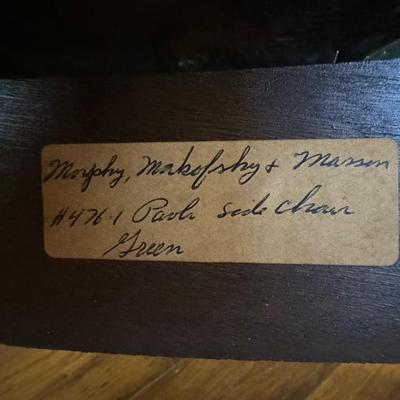 Morphy, Makofsky & Masson
#476-1 Paoli Side Chair
Green